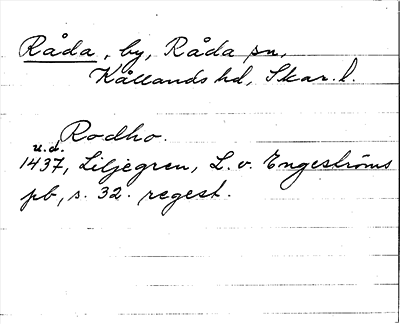 Råda, by, Råda sn,
Kållands hd, Skar. l.
Rodho.
u.d.
1437, Liljegren, L. v. Engeströms
pb, s. 32. regest.